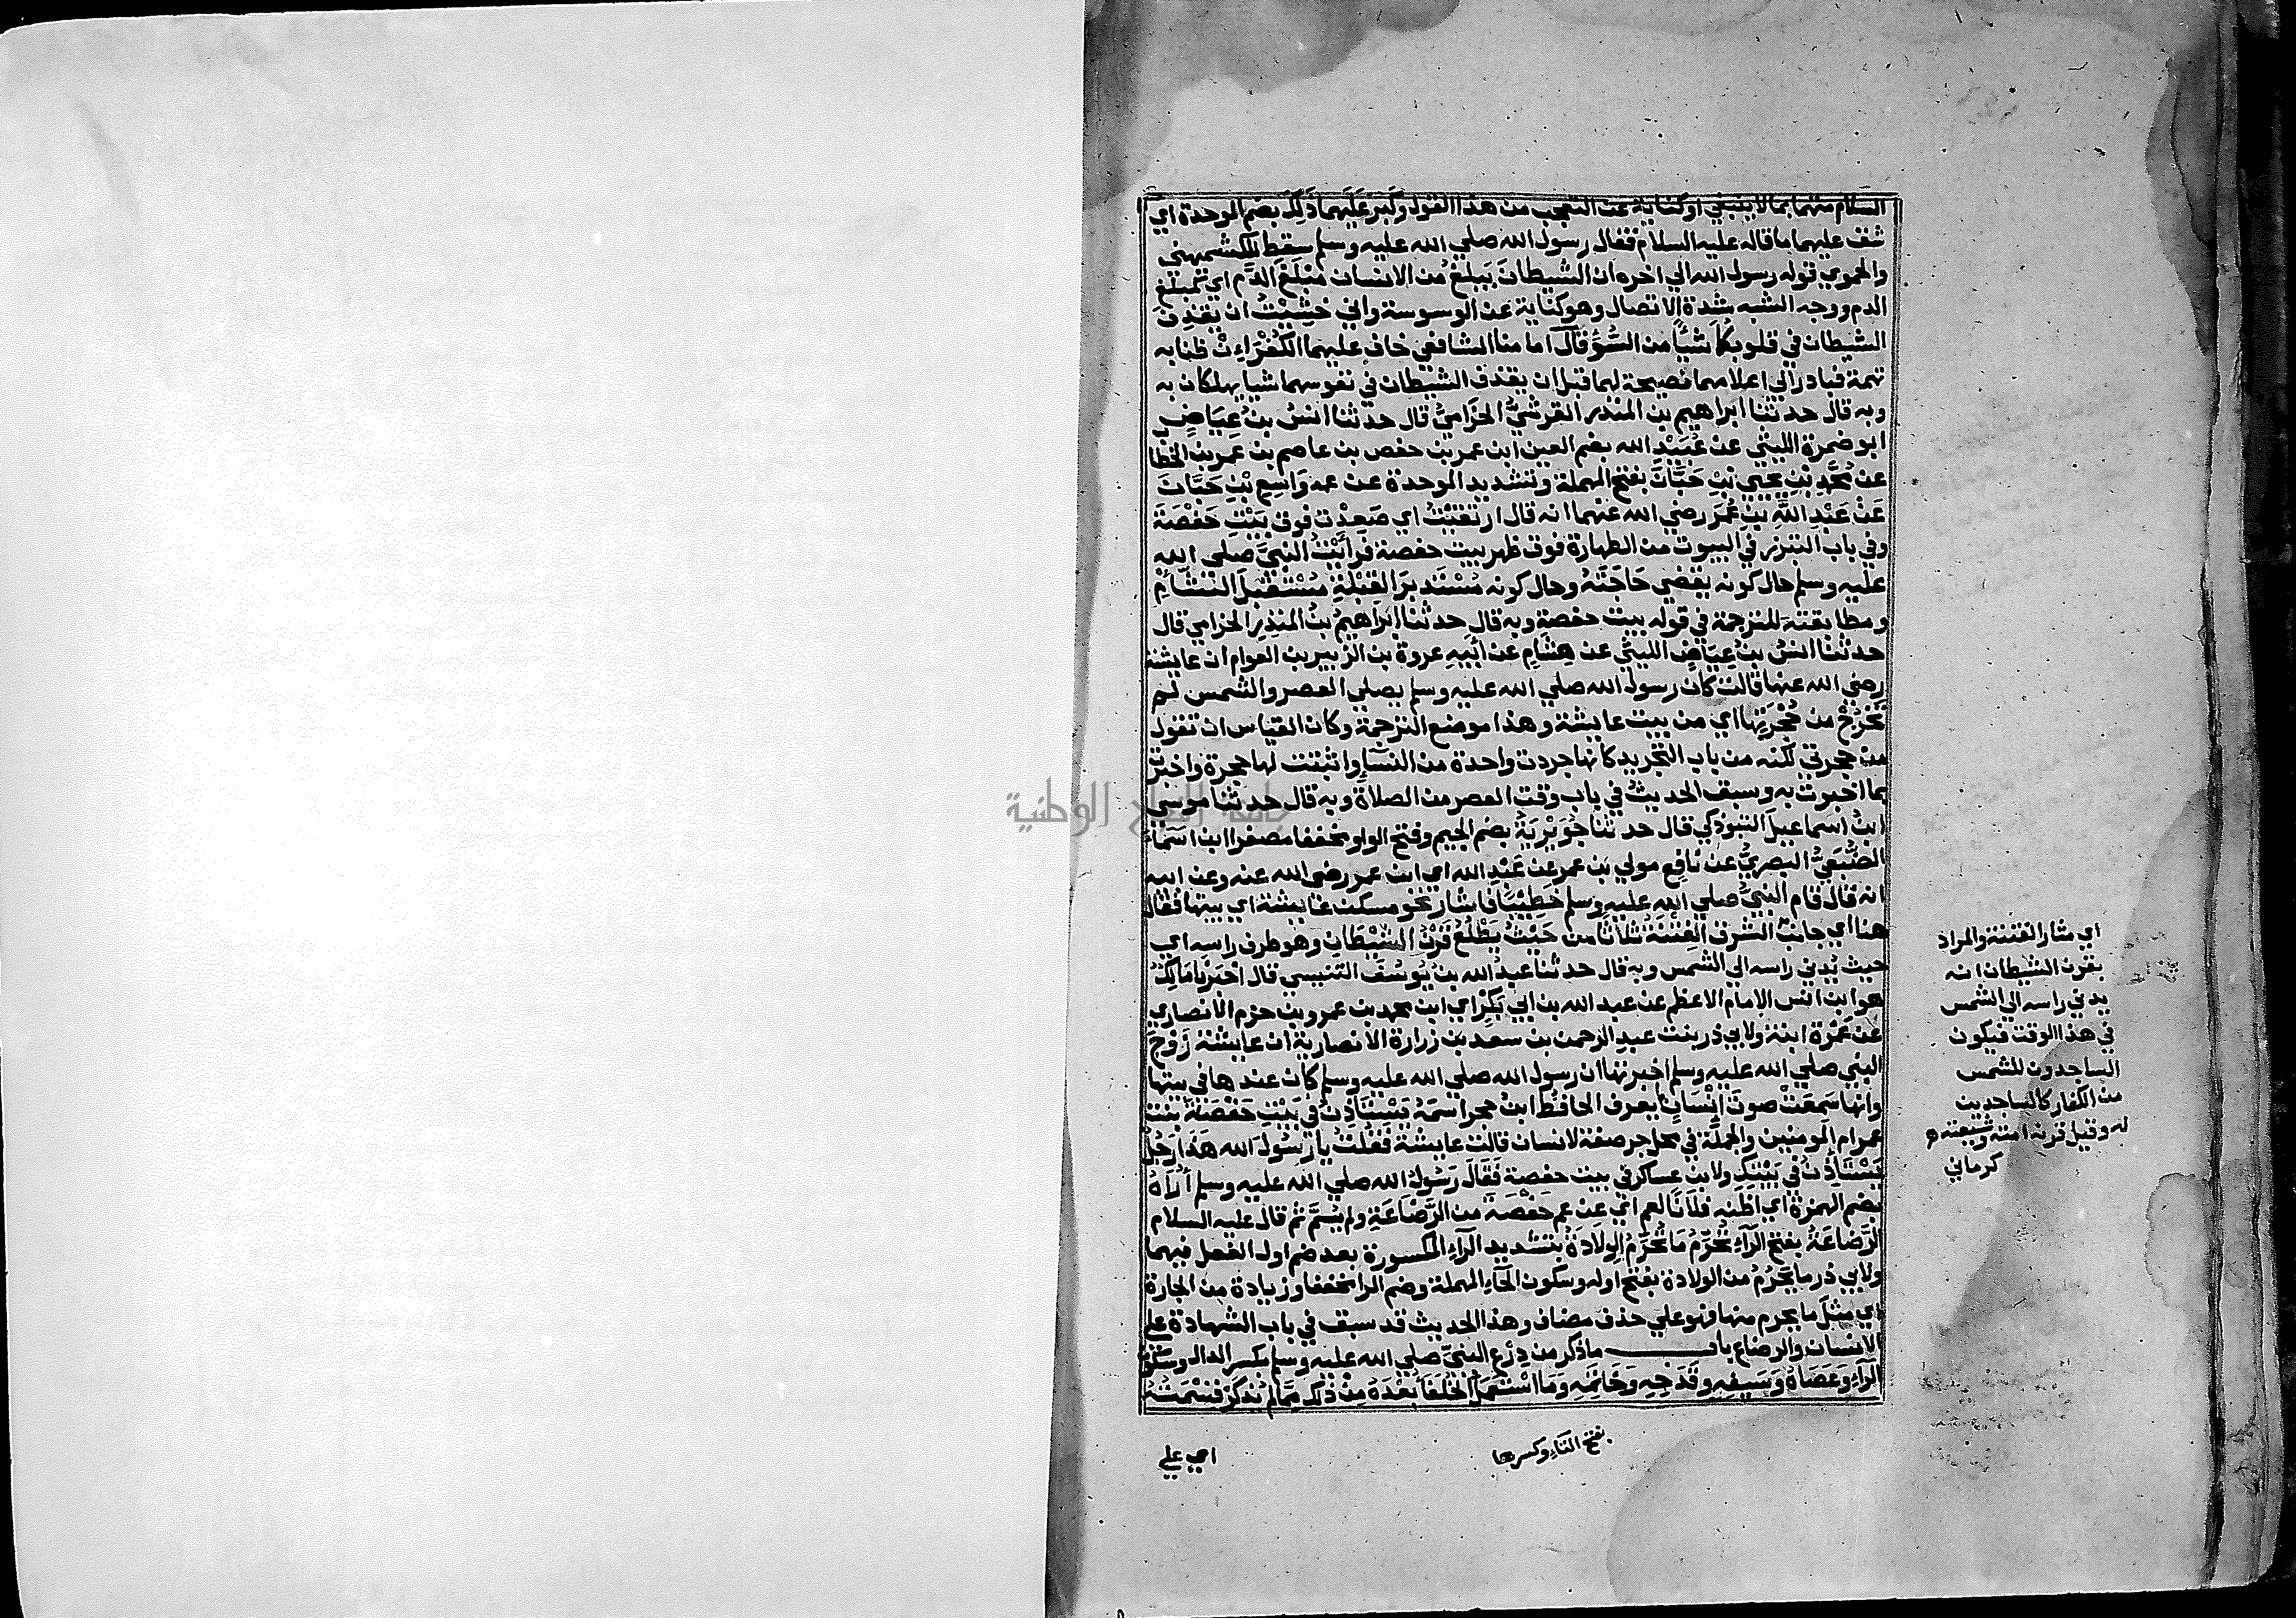 السلام متهما بما لا ينبغي او كناية عن التعجب من هذا القول وكبر عليهما ذلك بضم الموحدة اي
شق عليهما ما قاله عليه السلام فقال رسول الله صلي الله عليه وسلم سقط للكشميهني
والحموي قوله رسول الله الي اخره ان الشيطان يبلغ من الانسان مبلغ الدم اي كمبلغ
الدم ووجه الشبه شدة الاتصال وهو كناية عن الوسوسة واني خشيت ان يقذف
الشيطان في قلوبكما شيأ من السوء قال امامنا الشافعي خاف عليهما الكفر ان ظنا به
تهمة فبادر الي اعلامهما نصيحة لهما قبل ان يقذف الشيطان في نفوسهما شيا يهلكان به
وبه قال حدثنا ابراهيم بن المنذر القرشي الحزامي قال حدثنا انس بن عياض
ابو ضمرة الليثي عن عبيد الله بضم العين ابن عمر بن حفص بن عاصم بن عمر بن الخطا
عن محمد بن يحيي بن حبان بفتح المهملة وتشديد الموحدة عن عمه واسع بن حبان
عن عبد الله بن عمر رضي الله عنهما انه قال ارتقيت اي صعدت فوق بيت حفصة
وفي باب التبرز في البيوت من الطهارة فوق ظهر بيت حفصة فرأيت النبي صلي الله
عليه وسلم حال كونه يقضي حاجته وحال كونه مستدبر القبلة مستقبل الشأم
ومطابقته للترجمة في قوله بيت حفصة وبه قال حدثنا ابراهيم بن المنذر الحزامي قال
حدثنا انس بن عياض الليثي عن هشام عن ابيه عروة بن الزبير بن العوام ان عايشة
رضي الله عنها قالت كان رسول الله صلي الله عليه وسلم يصلي العصر والشمس لم
تخرج من حجرتها اي من بيت عايشة وهذا موضع الترجمة وكان القياس ان تقول
من حجرتي لكنه من باب التجريد كانها جردت واحدة من النساء واثبتت لها حجرة واخبرت
بما اخبرت به وسبق الحديث في باب وقت العصر من الصلاة وبه قال حدثنا موسي
ابن اسماعيل التبوذكي قال حدثنا جويرية بضم الجيم وفتح الواو مخففا مصغرا ابن اسماء
الضبعي البصري عن نافع مولي بن عمر عن عبد الله اي ابن عمر رضي الله عنه وعن ابيه
انه قال قام النبي صلي الله عليه وسلم خطيبا فاشار نحو مسكن عايشة اي بيتها فقال
هنا اي جانب الشرق الفتنة ثلاثا من حيث يطلع قرن الشيطان وهو طرف راسه اي
حيث يدني راسه الي الشمس وبه قال حدثنا عبد الله بن يوسف التنيسي قال اخبرنا مالك
هو ابن انس الامام الاعظم عن عبد الله بن ابي بكر اي ابن محمد بن عمرو بن حزم الانصاري
عن عمرة ابنة ولابي ذر بنت عبد الرحمن بن سعد بن زرارة الانصارية ان عايشة زوج
النبي صلي الله عليه وسلم اخبرتها ان رسول الله صلي الله عليه وسلم كان عندها في بيتها
وانها سمعت صوت انسان يعرف الحافظ ابن حجر اسمه يستأذن في بيت حفصة بنت
عمر ام المومنين والجملة في محل جر صفة لانسان قالت عايشة فقلت يا رسول الله هذا رجل
يستأذن في بيتك ولابن عساكر في بيت حفصة فقال رسول الله صلي الله عليه وسلم أراه
بضم الهمزة اي اظنه فلانا لعم اي عن عم حفصة من الرضاعة ولم يسم ثم قال عليه السلام
الرضاعة بفتح الراء تحرم ما تحرم الولادة بتشديد الراء المكسورة بعد ضم اول الفعل فيهما
ولابي ذر ما يحرم من الولادة بفتح اوله وسكون الحاء المهملة وضم الرا مخففا وزيادة من الجارة
اي مثل ما يحرم منها فهو علي حذف مضاف وهذا الحديث قد سبق في باب الشهادة علي
الانساب والرضاع باب ما ذكر من درع النبي صلي الله عليه وسلم بكسر الدال وسكون
الراء وعصاه وسيفه وقدحه وخاتمه وما استعمل الخلفا بعده من ذلك مما لم يذكر قسمته
اي مثار الفتنة والمراد
بقرن الشيطان انه
يدني راسه الي الشمس
في هذا الوقت فيكون
الساجدون للشمس
من الكفار كالساجدين
له وقيل قرنه امته وشيعته
كرماني
بفتح التاء وكسرها
اي علي
جامعة النجاح الوطنية